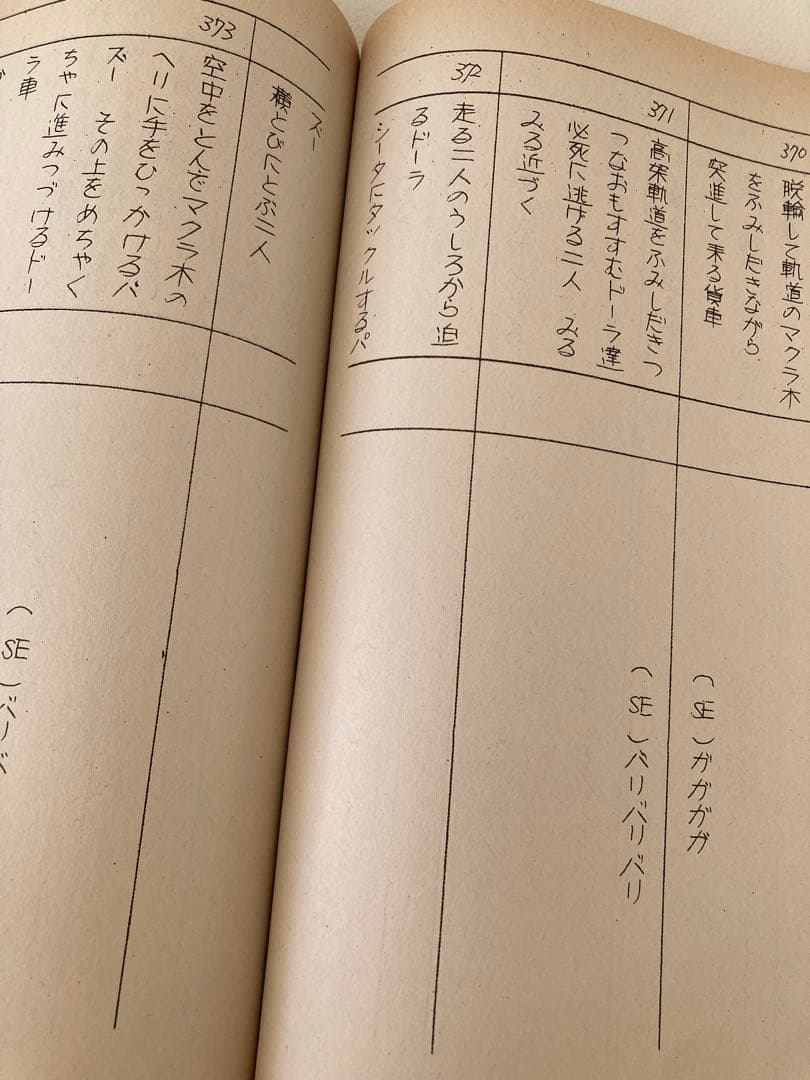 370
脱輪して軌道のマクラ木
をふみしだきながら
突進して来る貨車
(SE)ガガガガ
371
高架軌道をふみしだきつ
つなおもすすむドーラ達
必死に逃げる二人 みる
みる近づく
(SE)バリバリバリ
372
走る二人のうしろから迫
るドーラ
シータにタックルするパ
ズー
横とびにとぶ二人
373
空中をとんでマクラ木の
ヘリに手をひっかけるパ
ズー その上をめちゃく
ちゃに進みつづけるドー
ラ車
(SE)バリバ